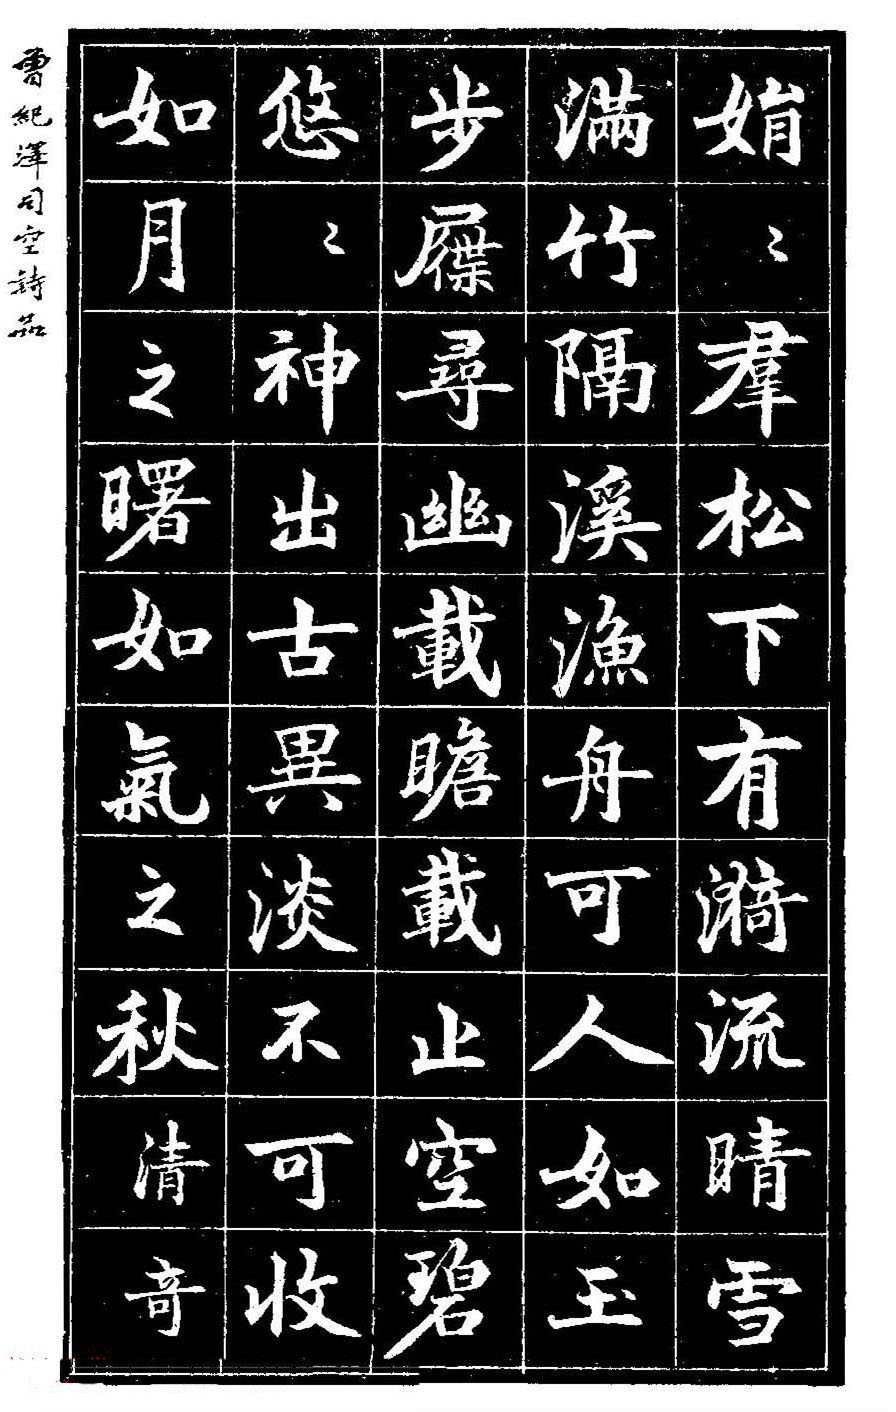 娟〻羣松下有漪流晴雪
滿竹隔溪漁舟可人如玉
步屧尋幽載瞻載止空碧
悠〻神出古異淡不可收
如月之曙如氣之秋清奇
曾紀澤司空詩品